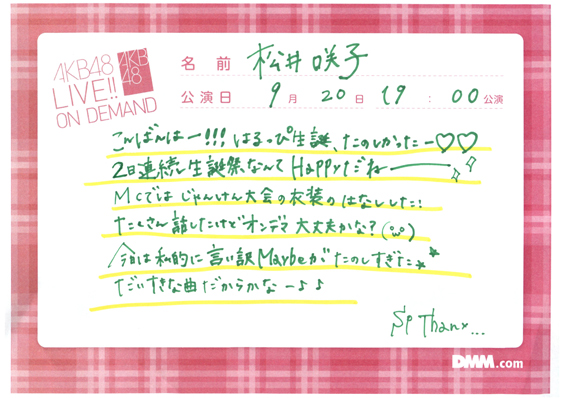 AKB48
LIVE!!
ON DEMAND
AKB
48
名前 松井咲子
公演日 9月20日 19:00公演
こんばんはー!!! はるっぴ生誕、たのしかったー♡♡
2日連続し生誕祭なんて Happyだねー
MCでは じゃんけん大会の衣装の はなししした!
たくさん話したけどオンデマ大丈夫かな?(・ω・)
今日は私的に言い訳Maybeが たのしすぎた★★
だいすきな曲だからかなー♪♪
Sp Thanx...
DMM.com